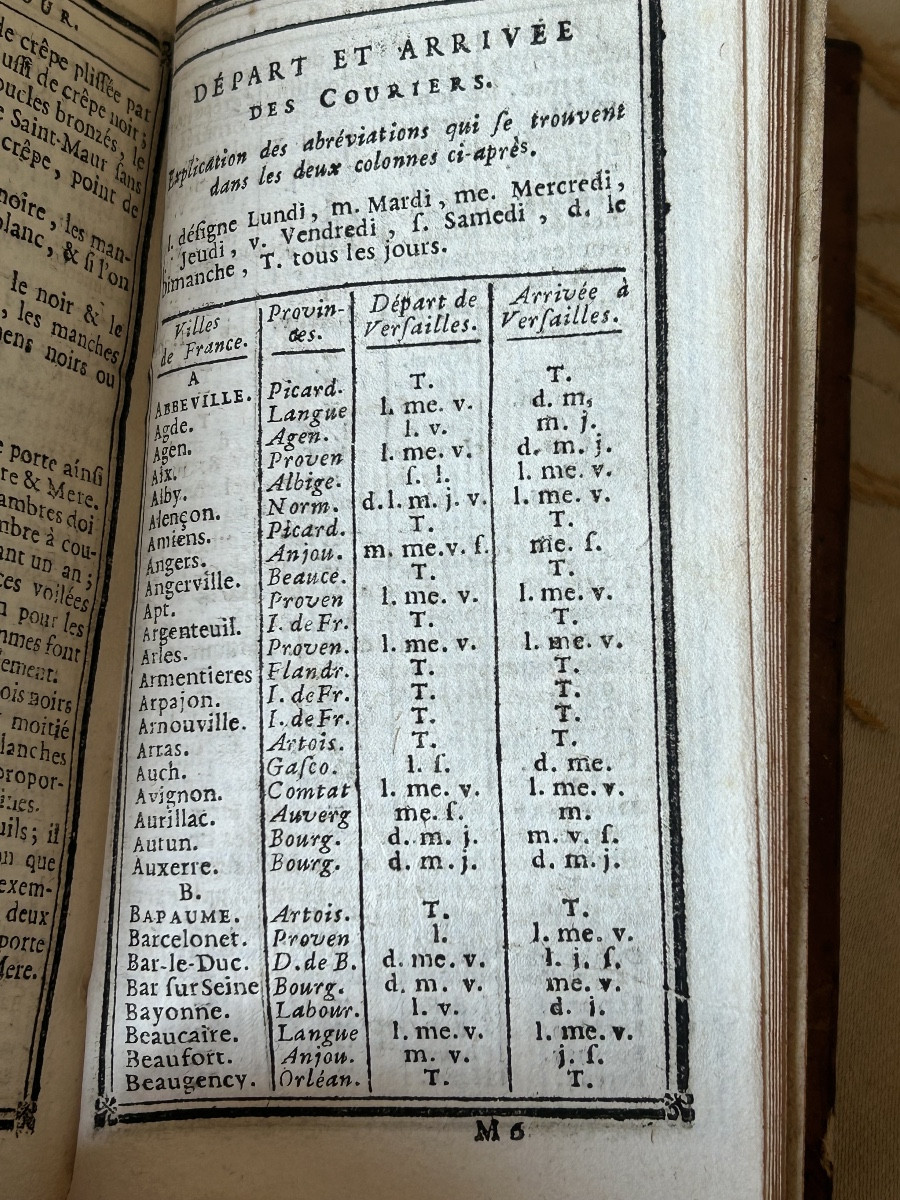 OUR.
de crêpe pliſſée par
uſſi de crêpe noir;
oucles bronzés, le
e Saint-Maur ſans
crêpe, point de
noire, les man-
blanc, & ſi l'on
le noir & le
, les manches
ens noirs ou
e porte ainſi
re & Mere.
ambres doi
mbre à cou-
ant un an;
ces voilées
n pour les
mmes font
lement.
ois noirs
moitié
lanches
propor-
ines.
uils; il
on que
exem-
deux
porte
Mere.
DÉPART ET ARRIVÉE
DES COURIERS.
Explication des abréviations qui ſe trouvent
dans les deux colonnes ci-après.
l. déſigne Lundi, m. Mardi, me. Mercredi,
Jeudi, v. Vendredi, ſ. Samedi, d. le
Dimanche, T. tous les jours.
Villes de France. Provin-ces. Départ de Verſailles. Arrivée à Verſailles.
A
ABBEVILLE. Picard. T. T.
Agde. Langue l. me. v. d. m,
Agen. Agen. l. v. m. j.
Aix. Proven l. me. v. d. m. j.
Alby. Albige. ſ. l. l. me. v.
Alençon. Norm. d. l. m. j. v. l. me. v.
Amiens. Picard. T. T.
Angers. Anjou. m. me. v. ſ. me. ſ.
Angerville. Beauce. T. T.
Apt. Proven l. me. v. l. me. v.
Argenteuil. I. de Fr. T. T.
Arles. Proven. l. me. v. l. me. v.
Armentieres Flandr. T. T.
Arpajon. I. de Fr. T. T.
Arnouville. I. de Fr. T. T.
Arras. Artois. T. T.
Auch. Gaſco. l. ſ. d. me.
Avignon. Comtat l. me. v. l. me. v.
Aurillac. Auverg me. ſ. m.
Autun. Bourg. d. m. j. m. v. ſ.
Auxerre. Bourg. d. m. j. d. m. j.
B.
BAPAUME. Artois. T. T.
Barcelonet. Proven l. l. me. v.
Bar-le-Duc. D. de B. d. me. v. l. j. ſ.
Bar ſur Seine Bourg. d. m. v. me. v.
Bayonne. Labour. l. v. d. j.
Beaucaire. Langue l. me. v. l. me. v.
Beaufort. Anjou. m. v. j. ſ.
Beaugency. Orléan. T. T.
M 6